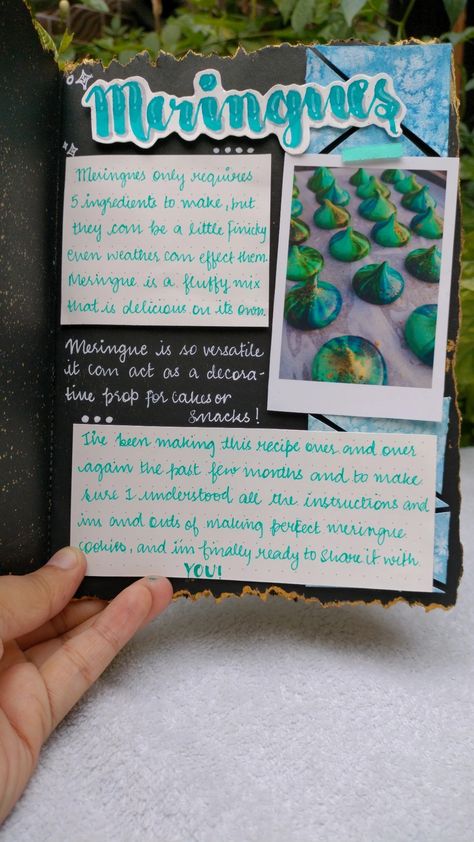 Meringues
Meringues only requires
5 ingredients to make, but
they can be a little finicky
even weather can effect them.
Meringue is a fluffy mix
that is delicious on its own.
Meringue is so versatile
it can act as a decora-
tive prop for cakes or
snacks!
I've been making this recipe over and over
again the past few months and to make
sure I understood all the instructions and
ins and outs of making perfect meringue
cookies, and im finally ready to share it with
YOU!